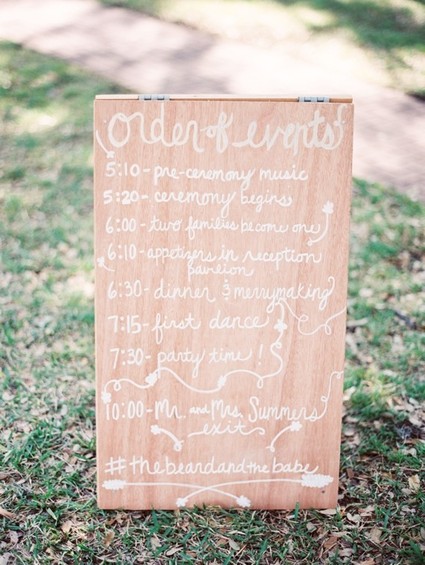 order of events
5:10 - pre-ceremony music
5:20 - ceremony begins
6:00 - two families become one
6:10 - appetizers in reception
pavilion
6:30 - dinner & merrymaking
7:15 - first dance
7:30 - party time!
10:00 - Mr. and Mrs. Summers
exit
#thebeardandthebabe